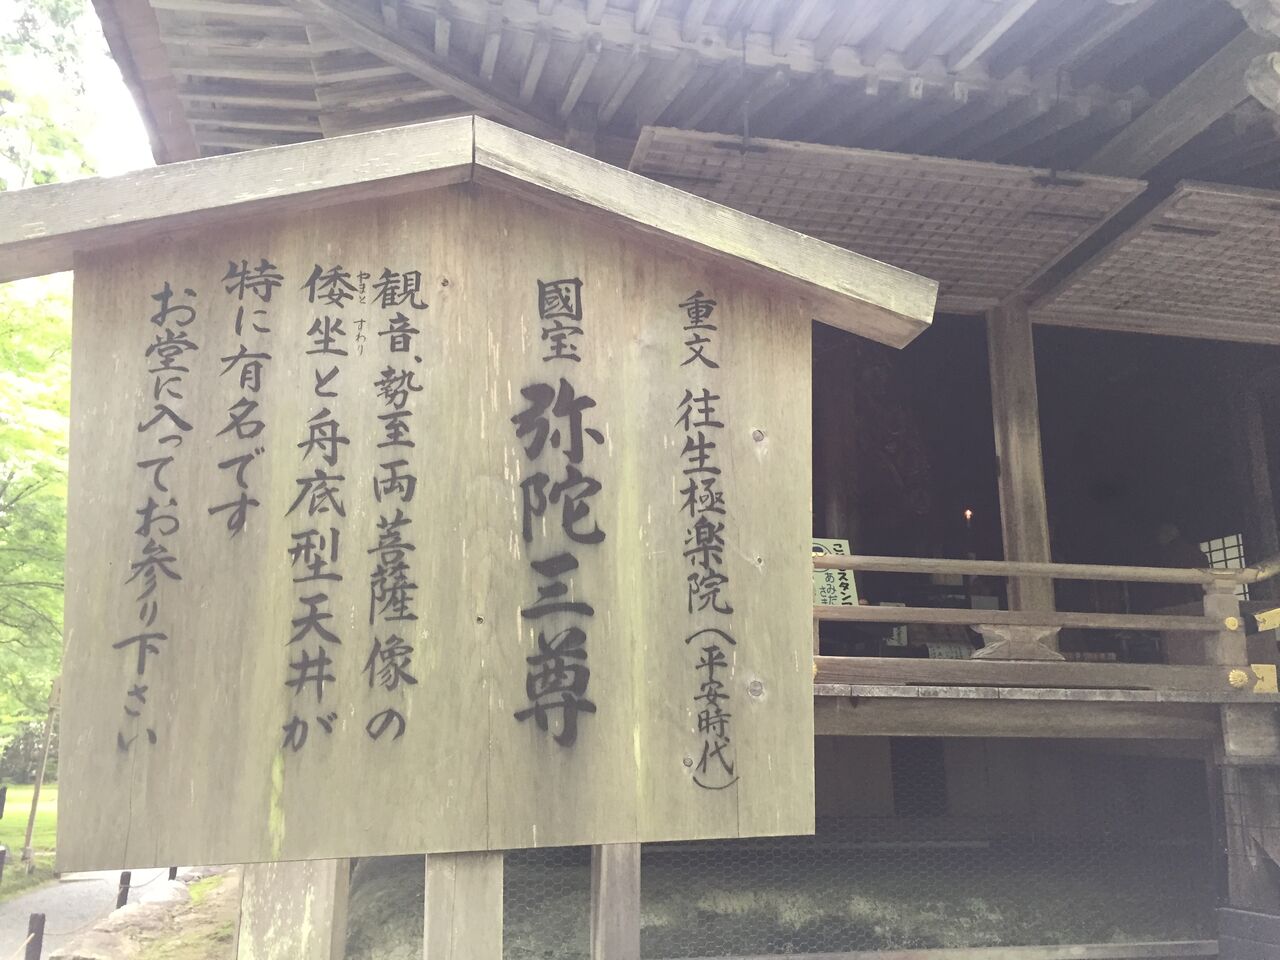 重文 往生極楽院（平安時代）
國宝 弥陀三尊
観音、勢至両菩薩像の
倭坐と舟底型天井が
やまと すわり
特に有名です
お堂に入ってお参り下さい
スタンプ
あみださま